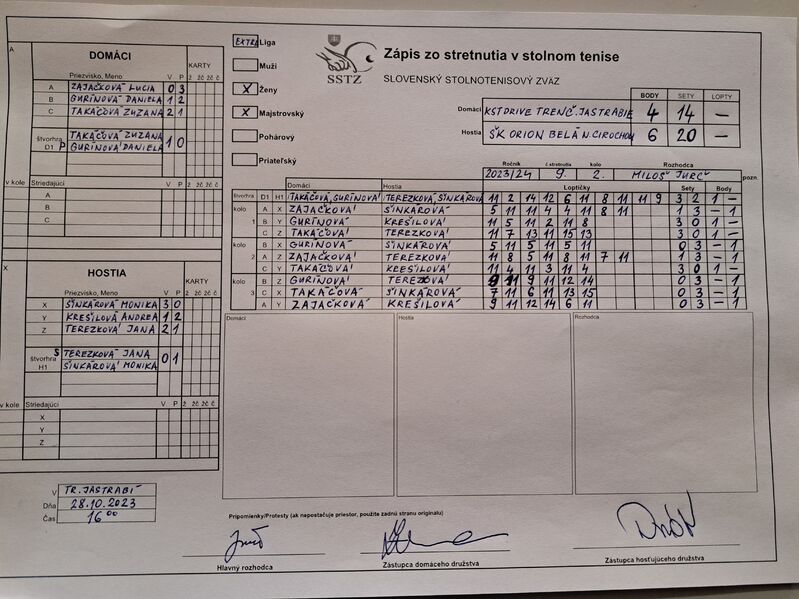 A
DOMÁCI
KARTY
Priezvisko, Meno V P ž žč žč č
A ZAJAČKOVÁ LUCIA 0 3
B GURÍNOVÁ DANIELA 1 2
C TAKÁČOVÁ ZUZANA 2 1
štvorhra D1 TAKÁČOVÁ ZUZANA 1 0
P GURÍNOVÁ DANIELA
v kole Striedajúci V P ž žč žč č
A
B
C
X
HOSTIA
KARTY
Priezvisko, Meno V P ž žč žč č
X ŠINKÁROVÁ MONIKA 3 0
Y KREŠILOVÁ ANDREA 1 2
Z TEREZKOVÁ JANA 2 1
štvorhra H1 S TEREZKOVÁ JANA 0 1
ŠINKÁROVÁ MONIKA
v kole Striedajúci V P ž žč žč č
X
Y
Z
V TR. JASTRABÍ
Dňa 28.10.2023
Čas 16⁰⁰
EXTRA Liga
Muži
X Ženy
X Majstrovský
Pohárový
Priateľský
SSTZ
Zápis zo stretnutia v stolnom tenise
SLOVENSKÝ STOLNOTENISOVÝ ZVÄZ
BODY SETY LOPTY
Domáci KST DRIVE TRENČ. JASTRABIE 4 14 –
Hostia ŠK ORION BELÁ N. CIROCHOU 6 20 –
Ročník č stretnutia kolo Rozhodca
2023/24 9. 2. MILOŠ JURČ pozn.
Domáci Hostia Loptičky Sety Body
štvorhra D1 H1 TAKÁČOVÁ, GURÍNOVÁ TEREZKOVÁ, ŠINKÁROVÁ 11 2 14 12 6 11 8 11 11 9 3 2 1 –
kolo A X ZAJAČKOVÁ ŠINKÁROVÁ 5 11 11 4 4 11 8 11 1 3 – 1
1 B Y GURÍNOVÁ KREŠILOVÁ 11 5 11 2 11 8 3 0 1 –
C Z TAKÁČOVÁ TEREZKOVÁ 11 7 13 11 15 13 3 0 1 –
kolo B X GURÍNOVÁ ŠINKÁROVÁ 5 11 5 11 5 11 0 3 – 1
2 A Z ZAJAČKOVÁ TEREZKOVÁ 11 8 5 11 8 11 7 11 1 3 – 1
C Y TAKÁČOVÁ KREŠILOVÁ 11 4 11 3 11 4 3 0 1 –
kolo B Z GURÍNOVÁ TEREZKOVÁ 9 11 9 11 12 14 0 3 – 1
3 C X TAKÁČOVÁ ŠINKÁROVÁ 7 11 6 11 13 15 0 3 – 1
A Y ZAJAČKOVÁ KREŠILOVÁ 9 11 12 14 6 11 0 3 – 1
Domáci Hostia Rozhodca
Pripomienky/Protesty (ak nepostačuje priestor, použite zadnú stranu originálu)
Hlavný rozhodca
Zástupca domáceho družstva
Zástupca hosťujúceho družstva